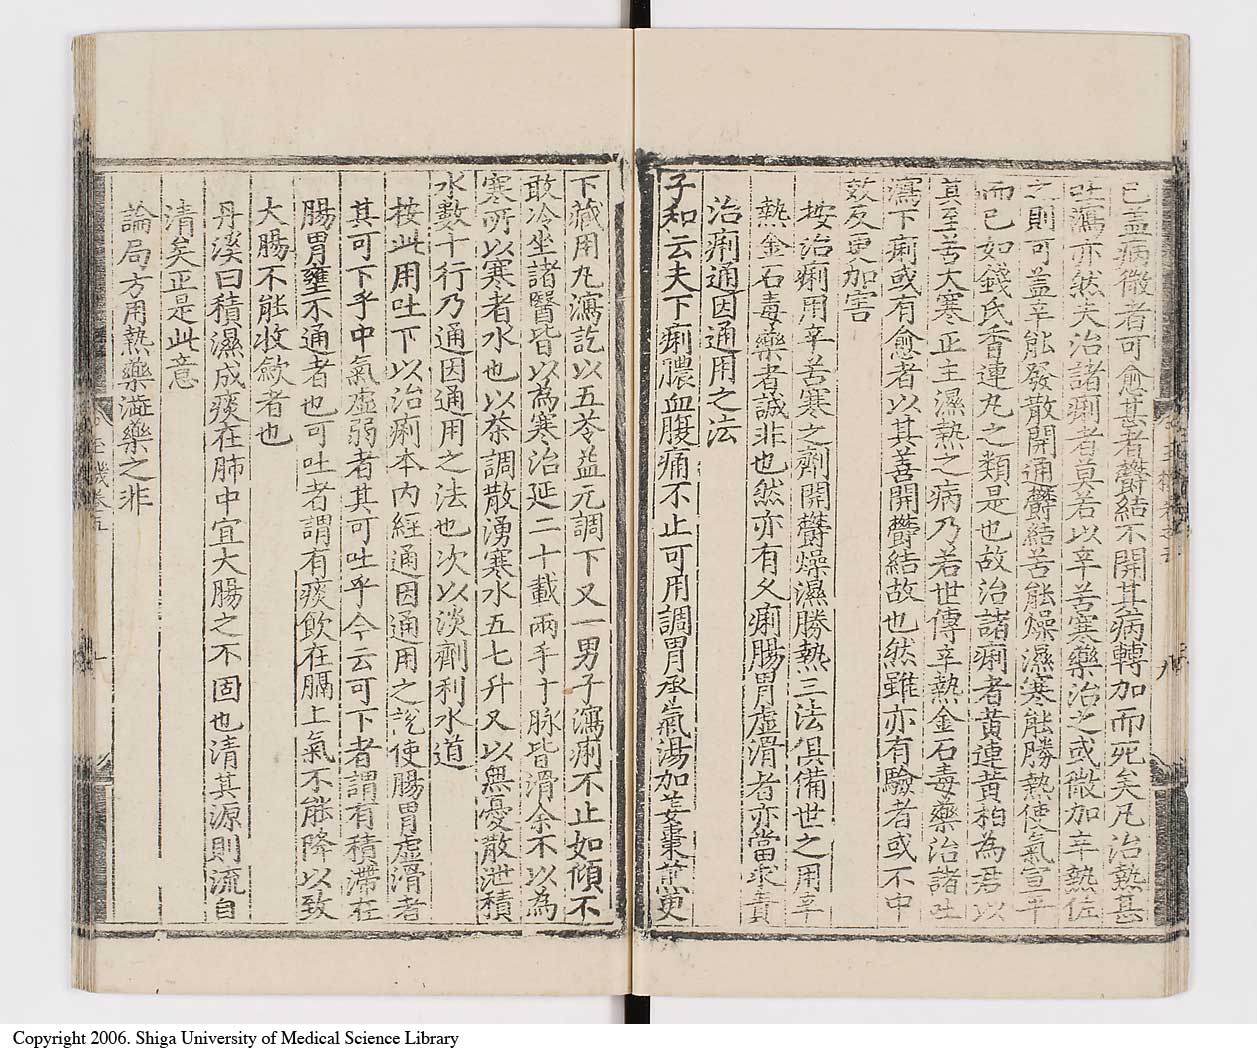 已盖病微者可愈甚者欝結不開其病轉加而死矣凡治熱甚
吐瀉亦然夫治諸痢者莫若以辛苦寒藥治之或微加辛熱佐
之則可盖辛能發散開通欝結苦能燥濕寒能勝熱使氣宣平
而已如錢氏香連丸之類是也故治諸痢者黄連黄柏為君以
其至苦大寒正主濕熱之病乃若世傳辛熱金石毒藥治諸吐
瀉下痢或有愈者以其善開欝結故也然雖亦有驗者或不中
效反更加害
按治痢用辛苦寒之劑開欝燥濕勝熱三法俱備世之用辛
熱金石毒藥者誠非也然亦有久痢腸胃虚滑者亦當求責
治痢通因通用之法
子和云夫下痢膿血腹痛不止可用調胃承氣湯加姜棗煎更
下藏用丸瀉訖以五苓益元調下又一男子瀉痢不止如傾不
敢冷坐諸醫皆以為寒治延二十載兩手十脉皆滑余不以為
寒所以寒者水也以茶調散湧寒水五七升又以無憂散泄積
水數十行乃通因通用之法也次以淡劑利水道
按此用吐下以治痢本内經通因通用之說使腸胃虚滑者
其可下乎中氣虚弱者其可吐乎今云可下者謂有積滯在
腸胃壅不通者也可吐者謂有痰飲在膈上氣不能降以致
大腸不能收斂者也
丹溪曰積濕成痰在肺中宜大腸之不固也清其源則流自
清矣正是此意
論局方用熱藥澁藥之非
至機卷五
Copyright 2006. Shiga University of Medical Science Library